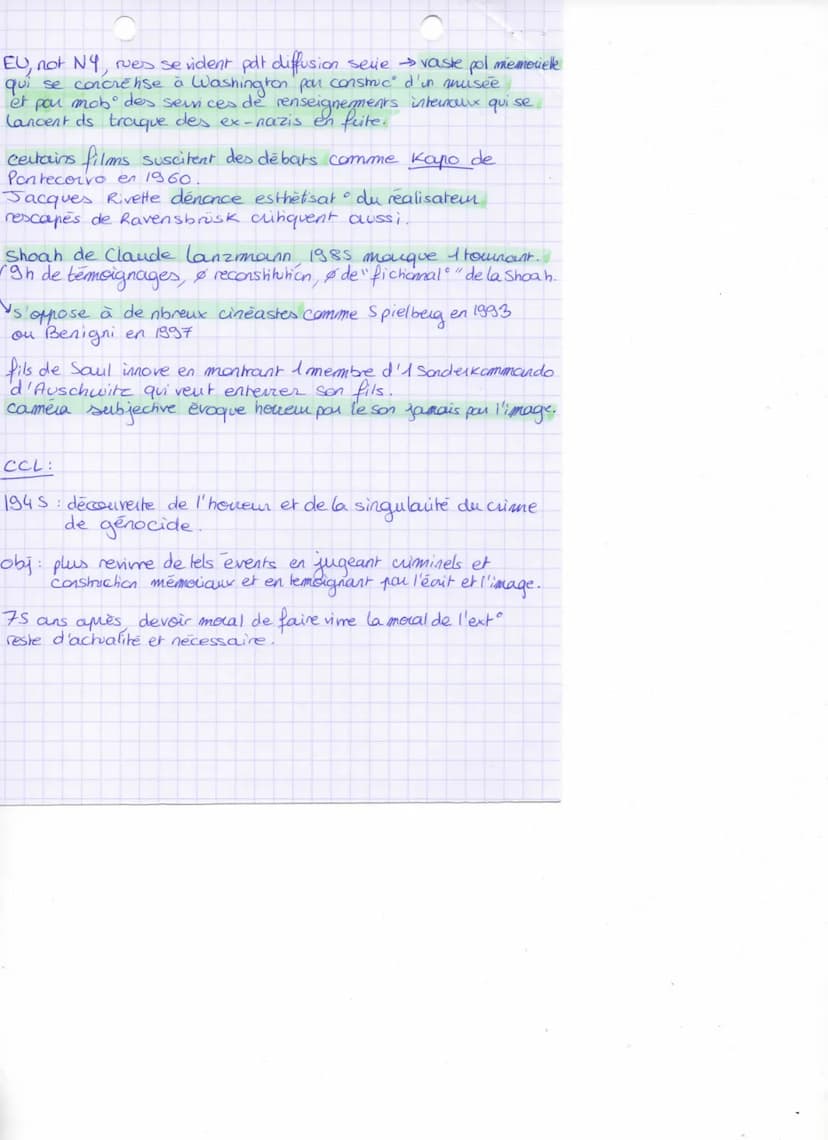 EU, not NY, rues se vident pdt diffusion serie → vaste pol mémorielle
qui se concrétise à Washington par construc° d'un musée
et par mob° des services de renseignements internaux qui se
lancent ds traque des ex-nazis en fuite.
certains films suscitent des débats comme Kapo de
Pontecorvo en 1960.
Jacques Rivette dénonce esthétisat° du réalisateur
rescapés de Ravensbrüsk critiquent aussi.
Shoah de Claude Lanzmann 1985 marque 1 tournant.
9h de témoignages, ø reconstitution, ø de "fictionnal°" de la Shoah.
s'oppose à de nbreux cinéastes comme Spielberg en 1993
ou Benigni en 1997
fils de Saul innove en montrant 1 membre d'1 Sonderkommando
d'Auschwitz qui veut enterrer son fils.
caméra subjective évoque horreur par le son jamais par l'image.
CCL :
1945 : découverte de l'horreur et de la singularité du crime
de génocide.
obj : plus revivre de tels évents en jugeant criminels et
construction mémoriaux et en témoignant par l'écrit et l'image.
75 ans après, devoir moral de faire vivre la moral de l'ext°
reste d'actualité et nécessaire.